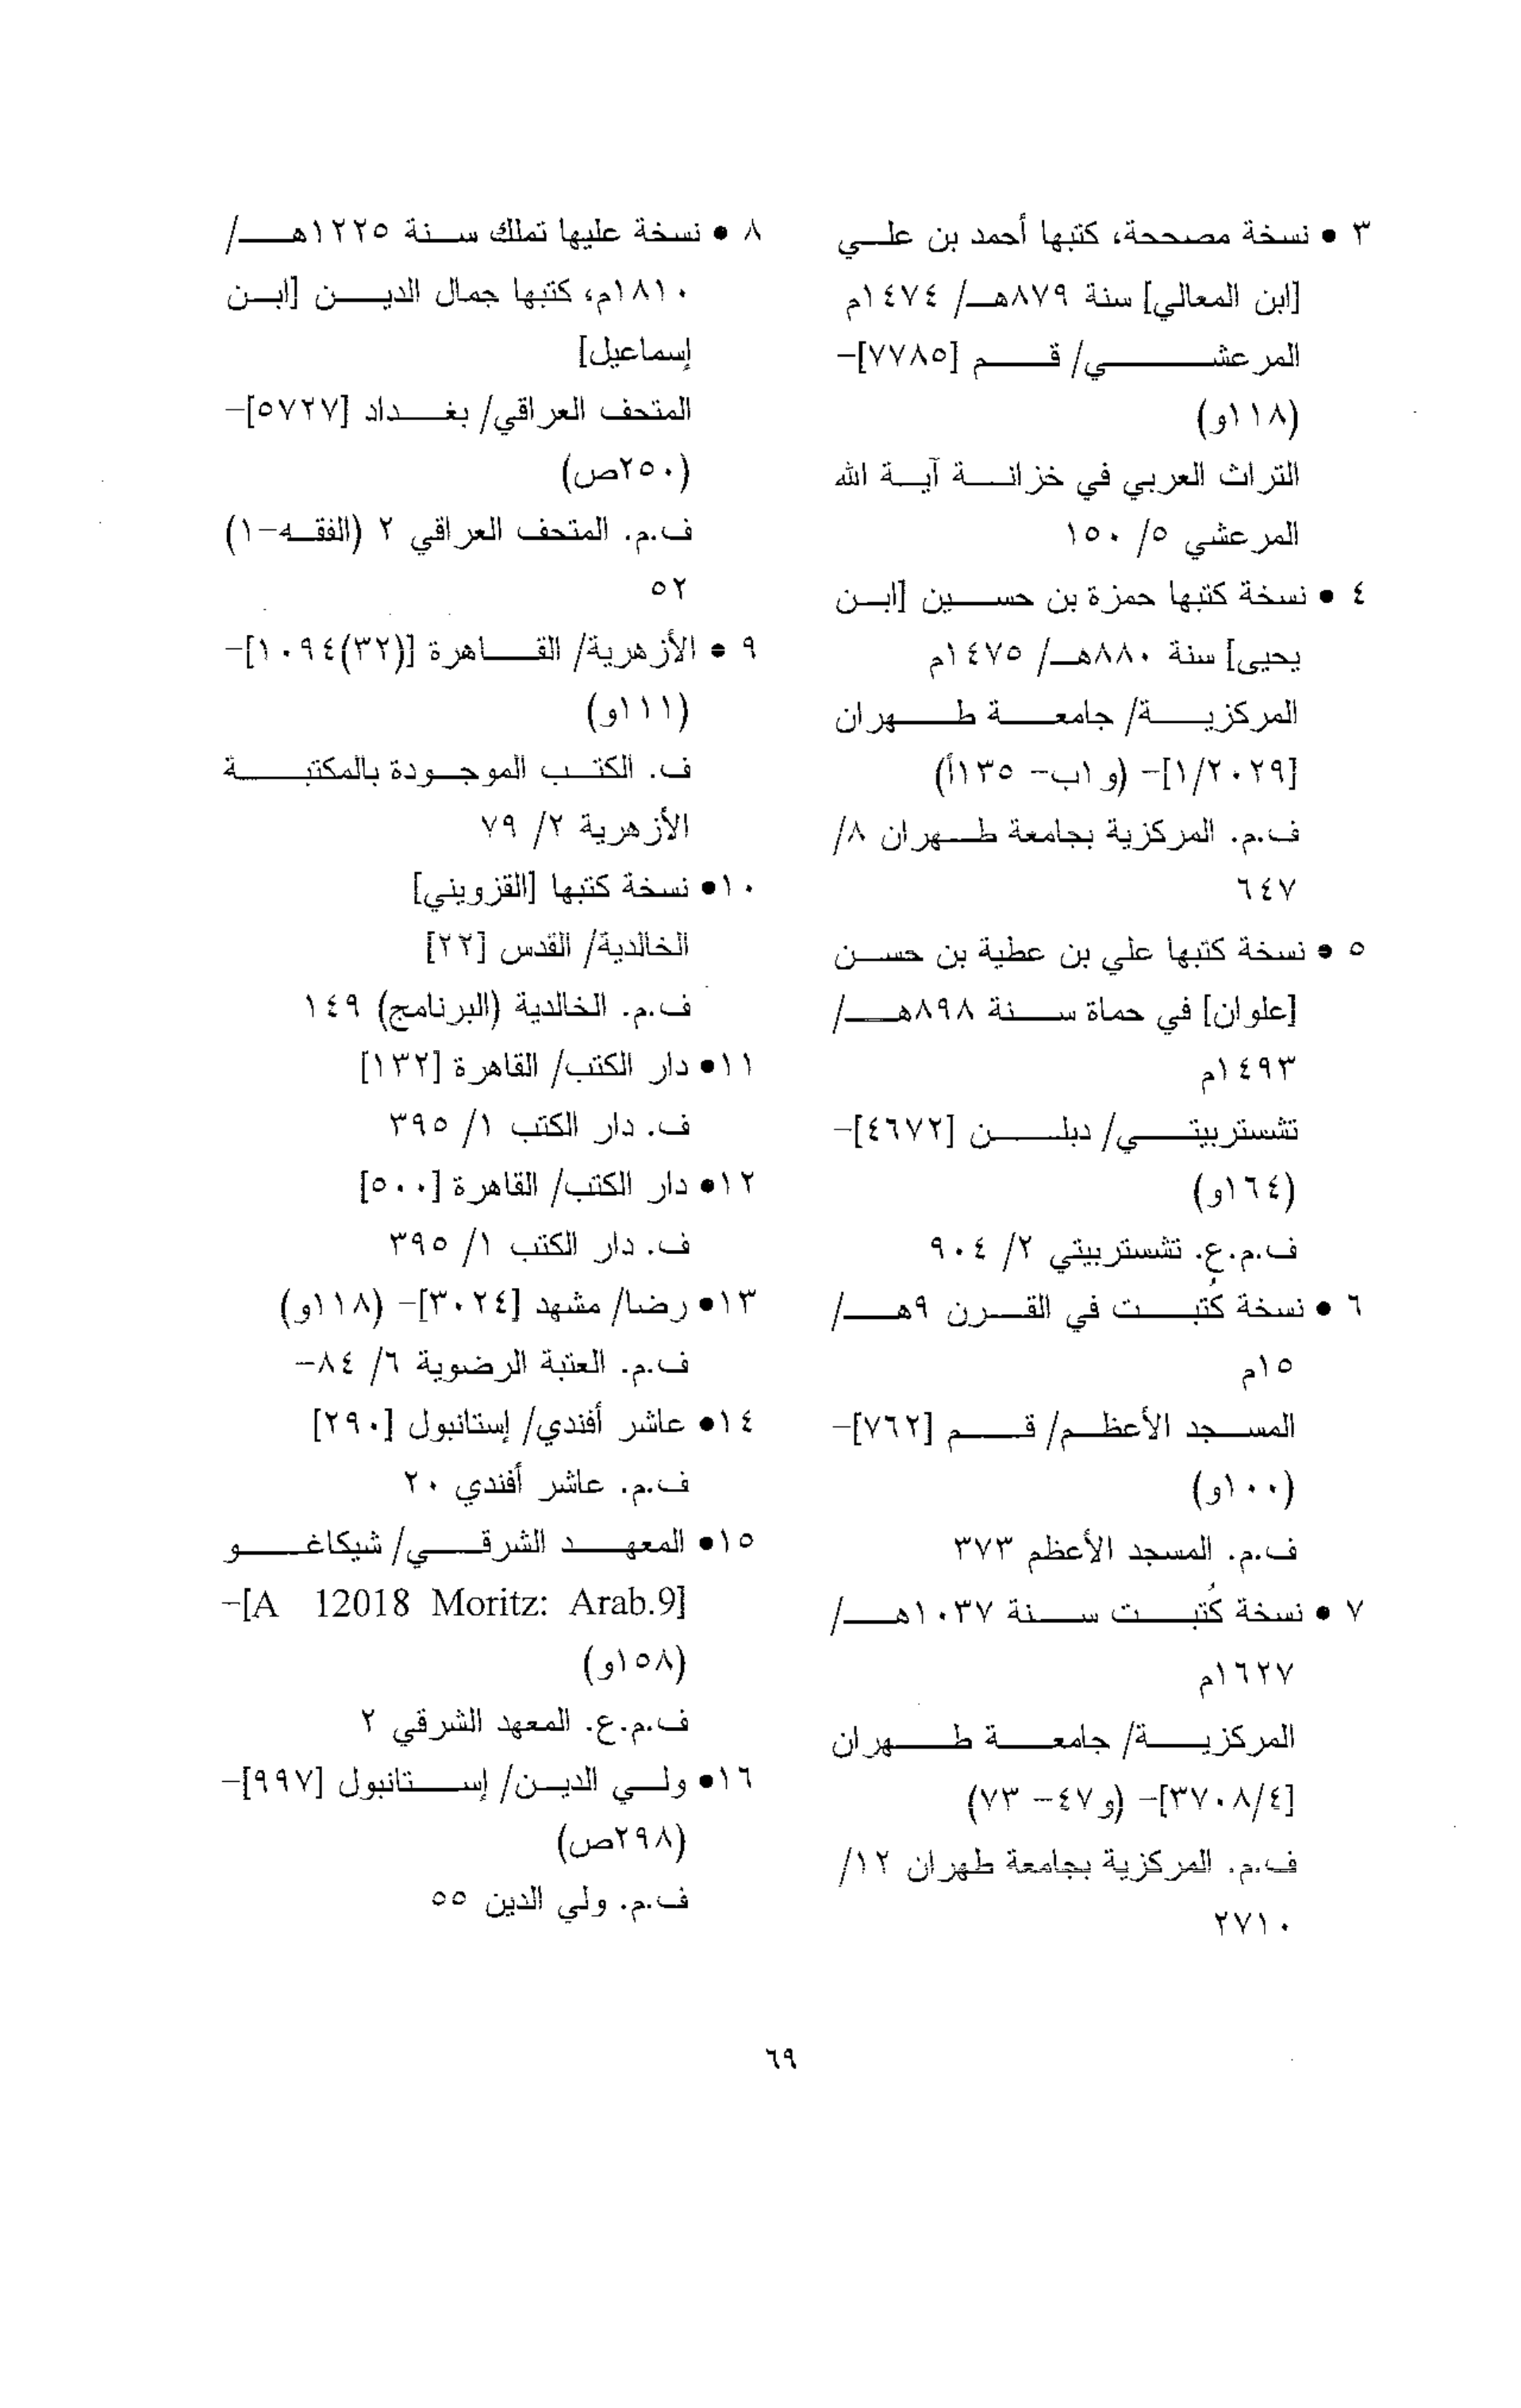 ٣ • نسخة مصححة، كتبها أحمد بن علي
[ابن المعالي] سنة ٨٧٩هـ/ ١٤٧٤م
المرعشي/ قم [٧٧٨٥]-
(١١٨و)
التراث العربي في خزانة آية الله
المرعشي ٥/ ١٥٠
٤ • نسخة كتبها حمزة بن حسين [ابن
يحيى] سنة ٨٨٠هـ/ ١٤٧٥م
المركزية/ جامعة طهران
[١/٢٠٢٩]- (و١ب- ١٣٥أ)
ف.م. المركزية بجامعة طهران ٨/
٦٤٧
٥ • نسخة كتبها علي بن عطية بن حسن
[علوان] في حماة سنة ٨٩٨هـ/
١٤٩٣م
تشستربيتي/ دبلن [٤٦٧٢]-
(١٦٤و)
ف.م.ع. تشستربيتي ٢/ ٩٠٤
٦ • نسخة كُتبت في القرن ٩هـ/
١٥م
المسجد الأعظم/ قم [٧٦٢]-
(١٠٠و)
ف.م. المسجد الأعظم ٣٧٣
٧ • نسخة كُتبت سنة ١٠٣٧هـ/
١٦٢٧م
المركزية/ جامعة طهران
[٣٧٠٨/٤]- (و٤٧- ٧٣)
ف.م. المركزية بجامعة طهران ١٢/
٢٧١٠
٨ • نسخة عليها تملك سنة ١٢٢٥هـ/
١٨١٠م، كتبها جمال الدين [ابن
إسماعيل]
المتحف العراقي/ بغداد [٥٧٢٧]-
(٢٥٠ص)
ف.م. المتحف العراقي ٢ (الفقه-١)
٥٢
٩ • الأزهرية/ القاهرة [(٣٢)١٠٩٤]-
(١١١و)
ف. الكتب الموجودة بالمكتبة
الأزهرية ٢/ ٧٩
١٠• نسخة كتبها [القزويني]
الخالدية/ القدس [٢٢]
ف.م. الخالدية (البرنامج) ١٤٩
١١• دار الكتب/ القاهرة [١٣٢]
ف. دار الكتب ١/ ٣٩٥
١٢• دار الكتب/ القاهرة [٥٠٠]
ف. دار الكتب ١/ ٣٩٥
١٣• رضا/ مشهد [٣٠٢٤]- (١١٨و)
ف.م. العتبة الرضوية ٦/ ٨٤-
١٤• عاشر أفندي/ إستانبول [٢٩٠]
ف.م. عاشر أفندي ٢٠
١٥• المعهد الشرقي/ شيكاغو
[A 12018 Moritz: Arab.9]-
(١٥٨و)
ف.م.ع. المعهد الشرقي ٢
١٦• ولي الدين/ إستانبول [٩٩٧]-
(٢٩٨ص)
ف.م. ولي الدين ٥٥
٦٩